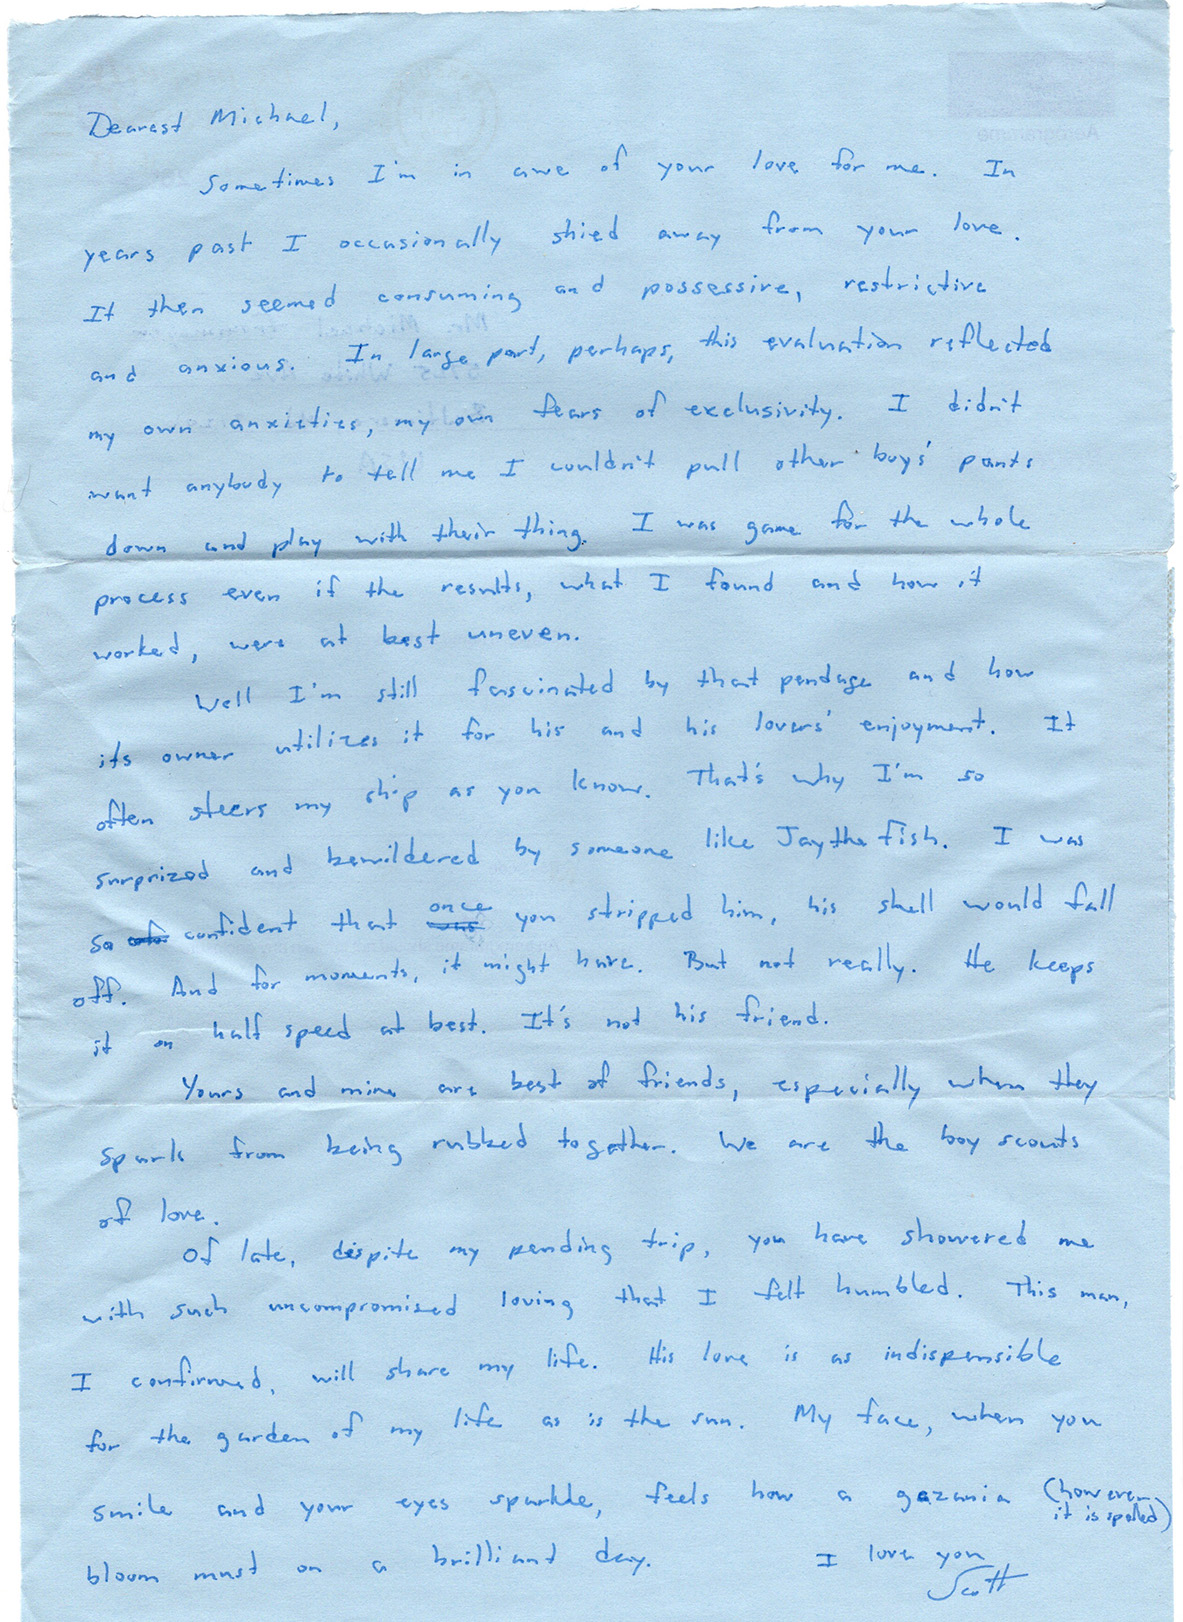 Dearest Michael,
Sometimes I'm in awe of your love for me. In
years past I occasionally shied away from your love.
It then seemed consuming and possessive, restrictive
and anxious. In large part, perhaps, this evaluation reflected
my own anxieties, my own fears of exclusivity. I didn't
want anybody to tell me I couldn't pull other boys' pants
down and play with their thing. I was game for the whole
process even if the results, what I found and how it
worked, were at best uneven.
Well I'm still fascinated by that pendage and how
its owner utilizes it for his and his lovers' enjoyment. It
often steers my ship as you know. That's why I'm so
surprized and bewildered by someone like Jay the Fish. I was
so confident that once you stripped him, his shell would fall
off. And for moments, it might have. But not really. He keeps
it on half speed at best. It's not his friend.
Yours and mine are best of friends, especially when they
spark from being rubbed together. We are the boy scouts
of love.
Of late, despite my pending trip, you have showered me
with such uncompromised loving that I felt humbled. This man,
I confirmed, will share my life. His love is as indispensible
for the garden of my life as is the sun. My face, when you
smile and your eyes sparkle, feels how a gazania (however
it is spelled)
bloom must on a brilliant day. I love you
Scott
Aerogramme
Mr. Michael
White Ave
USA